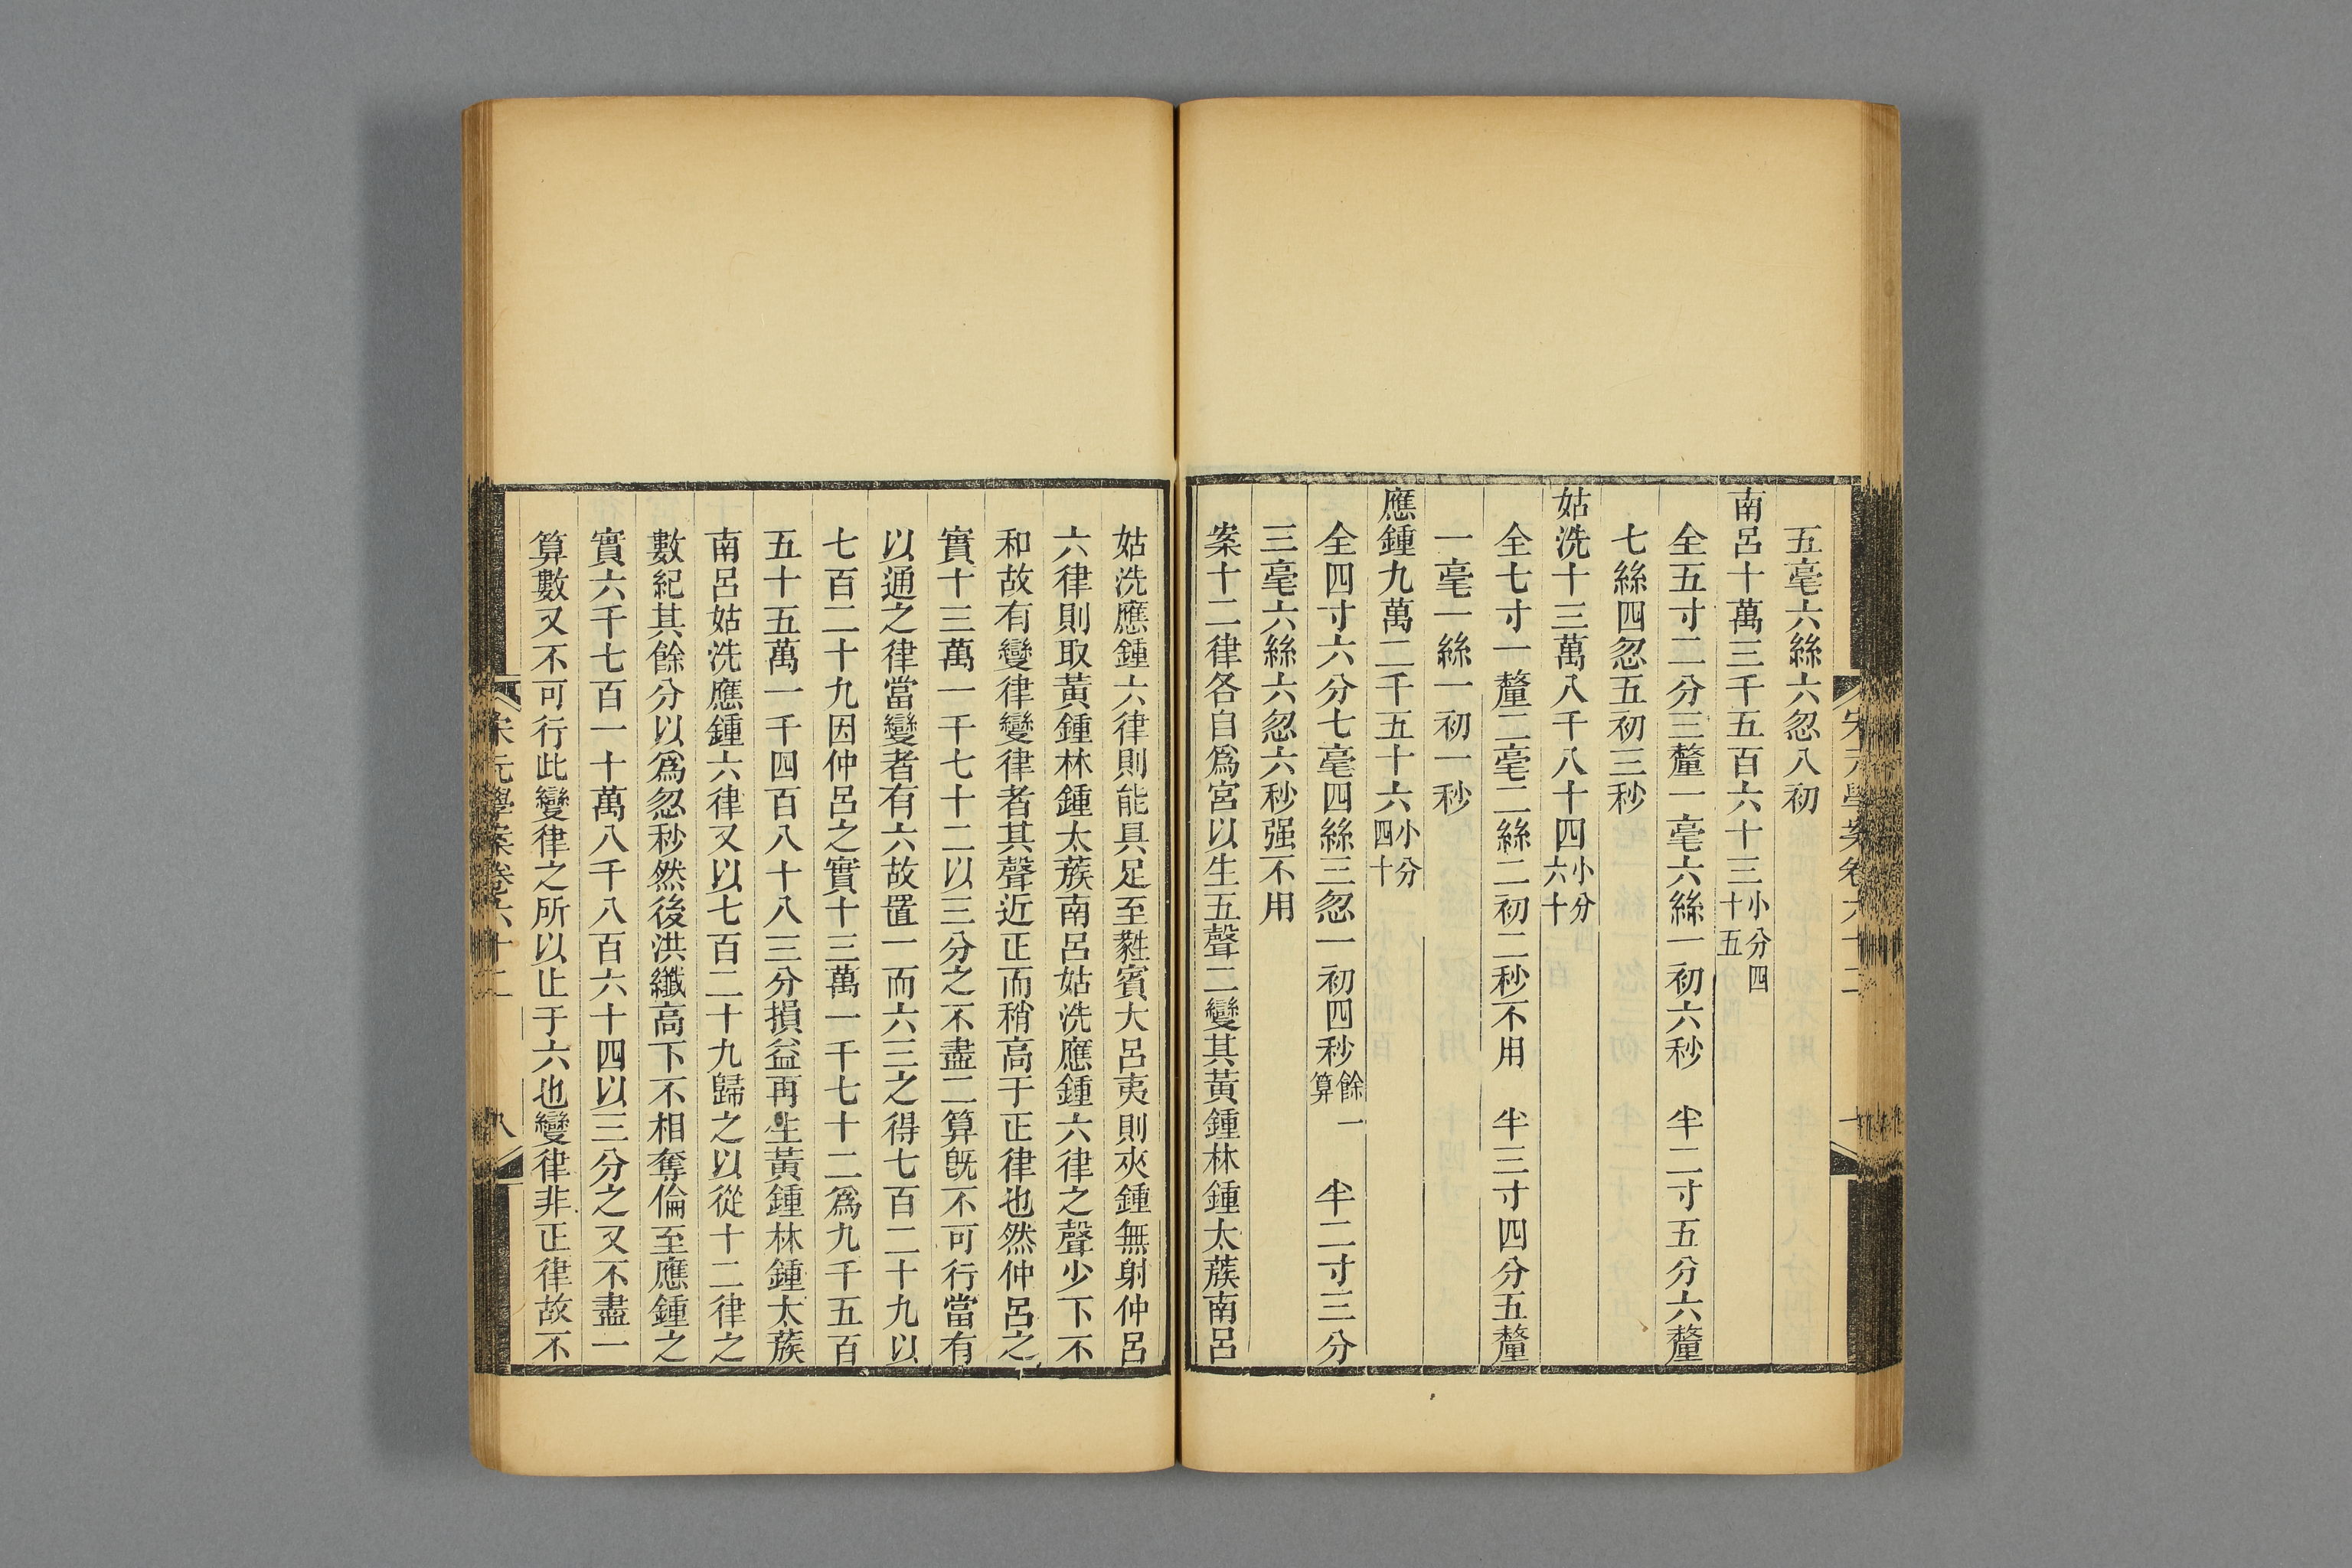 五毫六絲六忽八初
南呂十萬三千五百六十三小分四十五
全五寸二分三釐一毫六絲一初六秒　半二寸五分六釐
七絲四忽五初三秒
姑洗十三萬八千八十四小分六十
全七寸一釐二毫二絲二初二秒不用　半三寸四分五釐
一毫一絲一初一秒
應鍾九萬二千五十六小分四十
全四寸六分七毫四絲三忽一初四秒餘一算　半二寸三分
三毫六絲六忽六秒强不用
案十二律各自爲宮以生五聲二變其黃鍾林鍾太蔟南呂
姑洗應鍾六律則能具足至蕤賓大呂夷則夾鍾無射仲呂
六律則取黃鍾林鍾太蔟南呂姑洗應鍾六律之聲少下不
和故有變律變律者其聲近正而稍高于正律也然仲呂之
實十三萬一千七十二以三分之不盡二算旣不可行當有
以通之律當變者有六故置一而六三之得七百二十九以
七百二十九因仲呂之實十三萬一千七十二爲九千五百
五十五萬一千四百八十八三分損益再生黃鍾林鍾太蔟
南呂姑洗應鍾六律又以七百二十九歸之以從十二律之
數紀其餘分以爲忽秒然後洪纖高下不相奪倫至應鍾之
實六千七百一十萬八千八百六十四以三分之又不盡一
算數又不可行此變律之所以止于六也變律非正律故不
宋元學案卷六十二
八